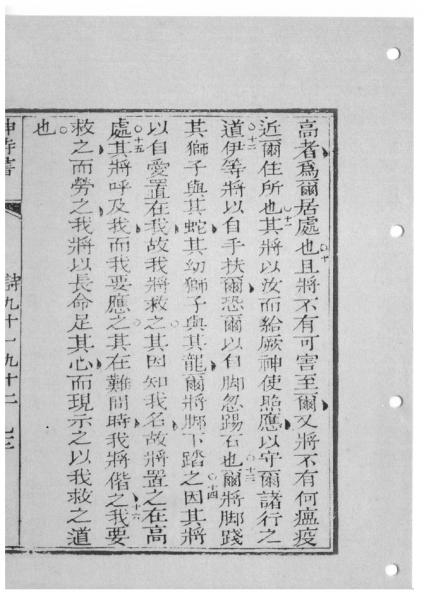 高者爲爾居處也且將不有可害至爾又將不有何瘟疫
近爾住所也其將以汝而給厥神使照應以守爾諸行之
道伊等將以自手扶爾恐爾以自脚忽踢石也爾將脚踐
其獅子與其蛇其幼獅子與其龍爾將脚下踏之因其將
以自愛置在我故我將救之其因知我名故將置之在高
處其將呼及我而我要應之其在難間時我將偕之我要
救之而勞之我將以長命足其心而現示之以我救之道
也
神詩書 詩九十一 九十二